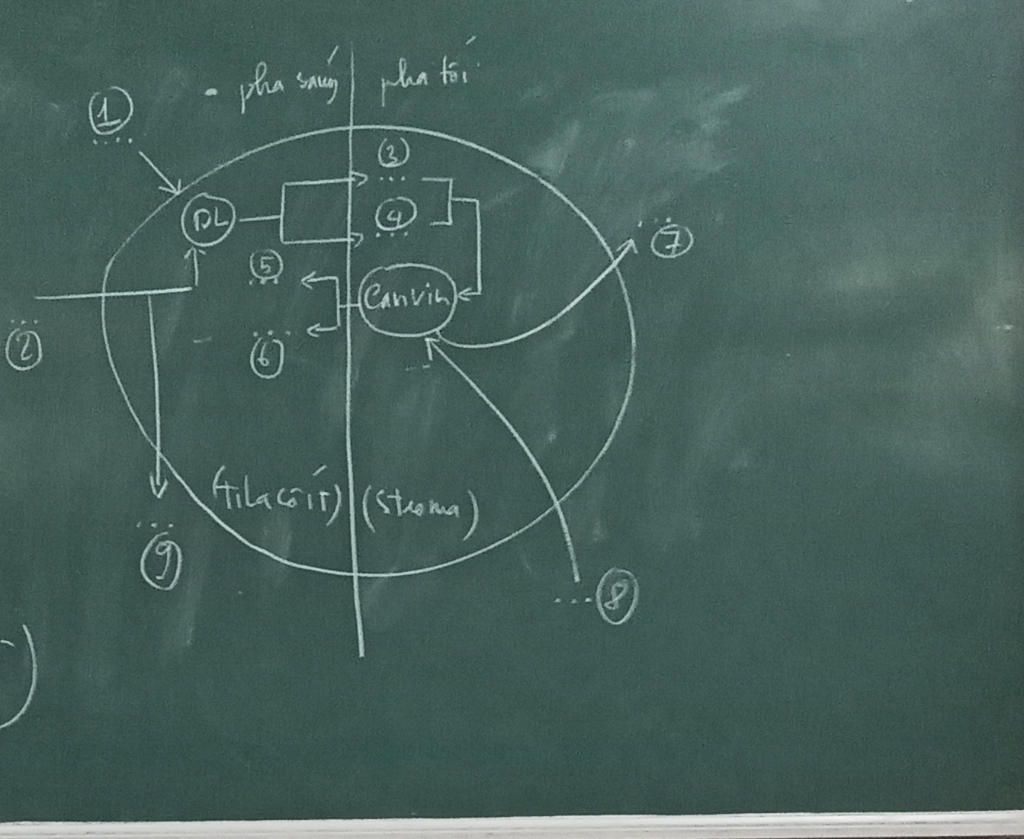 - pha sáng pha tối
①
....
③
...
DL
④
...
...
⑦
⑤
...
Canvin
...
②
....
⑥
...
(tilacôit) (stroma)
...
⑨
... ⑧
)